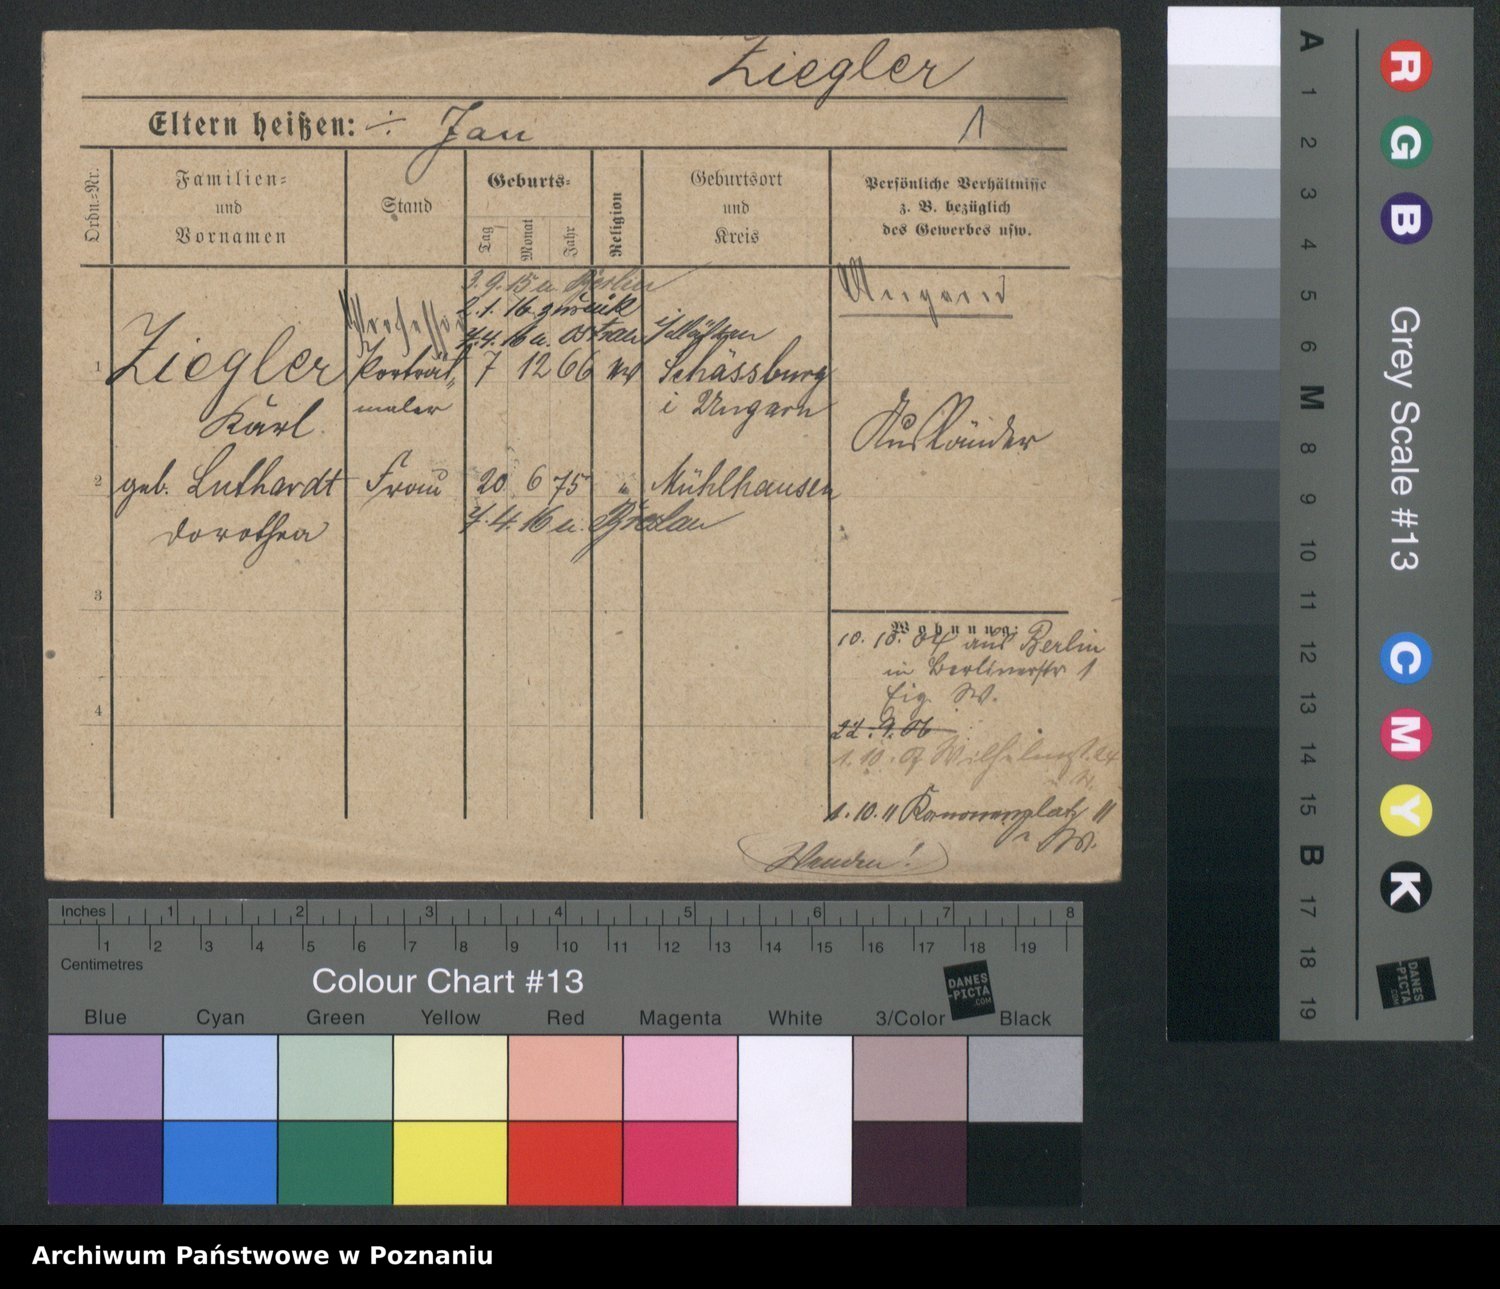 Ziegler
Eltern heißen: ÷ Jan 1
Ordn.-Nr.
Familien-
und
Vornamen
Stand
Geburts-
Tag
Monat
Jahr
Religion
Geburtsort
und
Kreis
Persönliche Verhältnisse
z. B. bezüglich
des Gewerbes usw.
3. 9. 15 n. Berlin
2. 1. 16 zurück
7. 4. 16 n.
Ungarn
Professor
1 Ziegler Porträt- 7 12 66 Schässburg
Karl maler i Ungarn
Ausländer
2 geb. Luthardt Frau 20 6 75 " Mühlhausen
Dorothea 7. 4. 16 n. Breslau
3
4
Wohnung:
10. 10. 04 aus Berlin
in Berlinerstr 1
Eig. W.
22. 9. 06
1. 10. 07 Wilhelmstr. 24
1. 10. 11 Kanonenplatz 11
Wenden!
Inches 1 2 3 4 5 6 7 8
1 2 3 4 5 6 7 8 9 10 11 12 13 14 15 16 17 18 19
Centimetres
Colour Chart #13
DANES
-PICTA
.COM
Blue Cyan Green Yellow Red Magenta White 3/Color Black
R G B Grey Scale #13 C M Y K
DANES
-PICTA
.COM
A 1 2 3 4 5 6 M 8 9 10 11 12 13 14 15 B 17 18 19
Archiwum Państwowe w Poznaniu